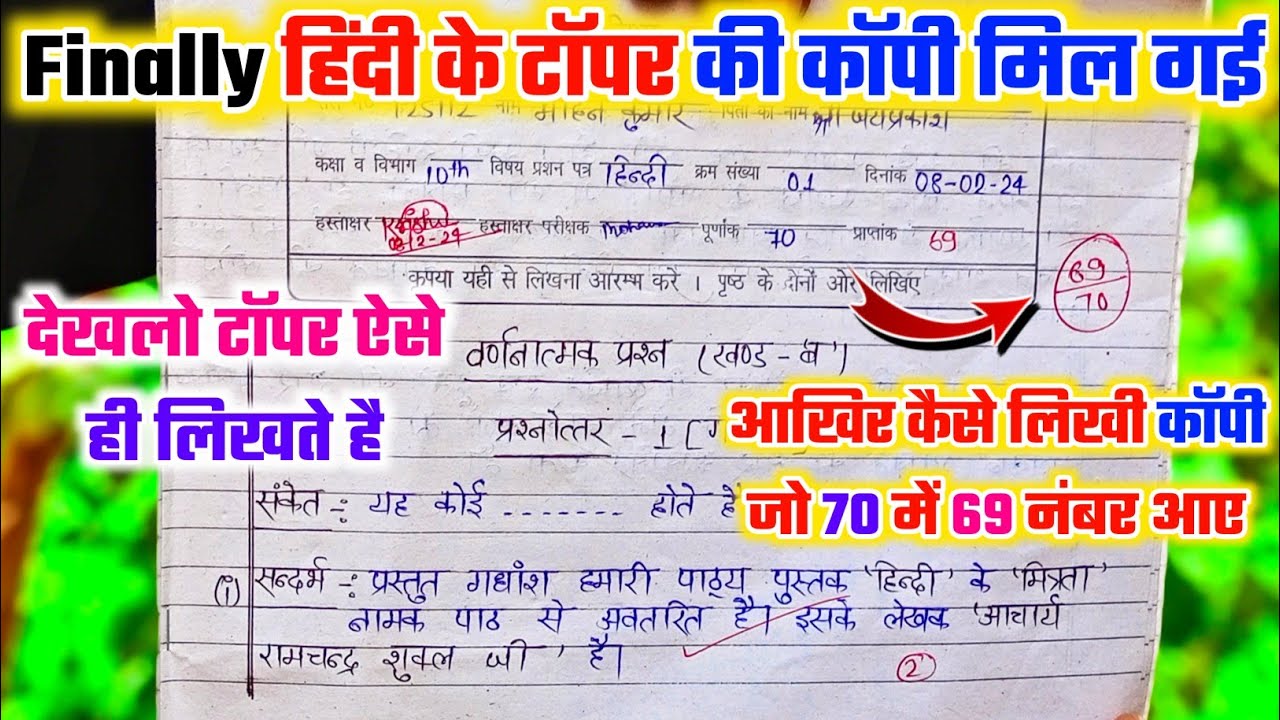 Finally हिंदी के टॉपर की कॉपी मिल गई
नाम मोहन कुमार पिता का नाम श्री जयप्रकाश
कक्षा व विभाग 10th विषय प्रशन पत्र हिन्दी क्रम संख्या 01 दिनांक 08-02-24
हस्ताक्षर हस्ताक्षर परीक्षक पूर्णांक 70 प्राप्तांक 69
कृपया यहीं से लिखना आरम्भ करें । पृष्ठ के दोनों ओर लिखिए
69
70
देखलो टॉपर ऐसे
ही लिखते है
वर्णनात्मक प्रश्न (खण्ड-ब')
प्रश्नोत्तर - 1
आखिर कैसे लिखी कॉपी
जो 70 में 69 नंबर आए
संकेत :- यह कोई ....... होते
(i) सन्दर्भ :- प्रस्तुत गद्यांश हमारी पाठ्य पुस्तक 'हिन्दी' के 'मित्रता'
नामक पाठ से अवतरित है। इसके लेखक 'आचार्य
रामचन्द्र शुक्ल जी' है।
2